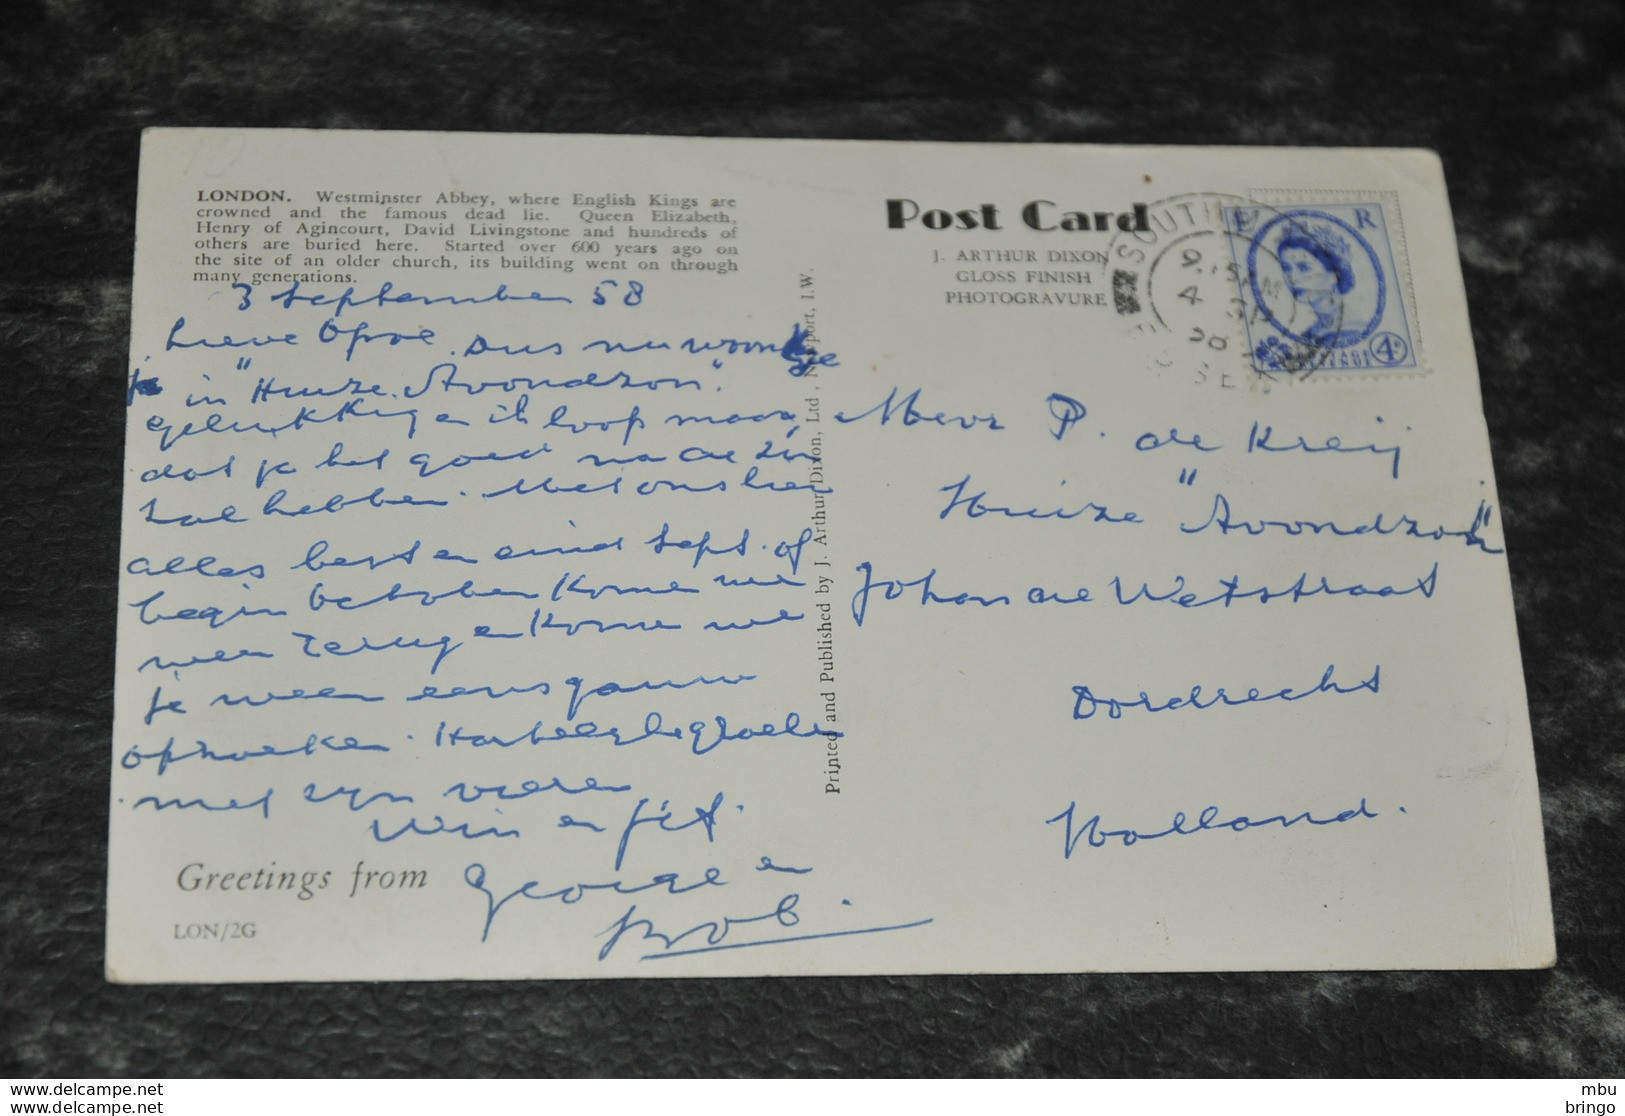 LONDON. Westminster Abbey, where English Kings are
crowned and the famous dead lie. Queen Elizabeth,
Henry of Agincourt, David Livingstone and hundreds of
others are buried here. Started over 600 years ago on
the site of an older church, its building went on through
many generations.
3 September 58
Lieve Opoe. Dus nu woon je
in "Huize Avondzon".
gelukkig en ik hoop maar
dat je het goed na de zin
zal hebben. Met ons hier
alles best en eind sept. of
begin October komen we
weer terug en komen we
je weer eens gauw
opzoeken. Hartelijke groeten
met zijn vieren
Wim en Jet.
George en
Bob.
Greetings from
LON/2G
Printed and Published by J. Arthur Dixon, Ltd., Newport, I.W.
Post Card
J. ARTHUR DIXON
GLOSS FINISH
PHOTOGRAVURE
SOUTH
9.15 PM
4 SEP
58
E R
POSTAGE 4D
Mevr P. de Kreij
Huize "Avondzon"
Johan de Wetstraat
Dordrecht
Holland.
www.delcampe.net
www.delcampe.net
mbu
bringo